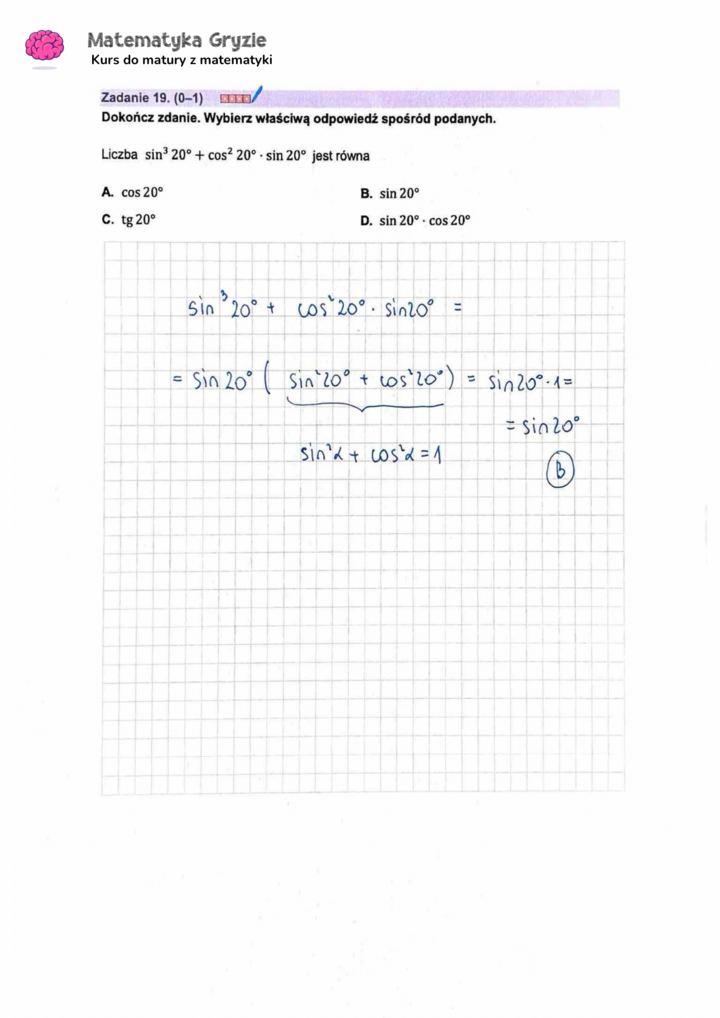 Matematyka Gryzie
Kurs do matury z matematyki
Zadanie 19. (0–1)
Dokończ zdanie. Wybierz właściwą odpowiedź spośród podanych.
Liczba sin³ 20° + cos² 20° · sin 20° jest równa
A. cos 20°
B. sin 20°
C. tg 20°
D. sin 20° · cos 20°
sin³20° + cos²20° · sin20° =
= sin 20° ( sin²20° + cos²20° ) = sin20° · 1 =
= sin20°
sin²α + cos²α = 1
B